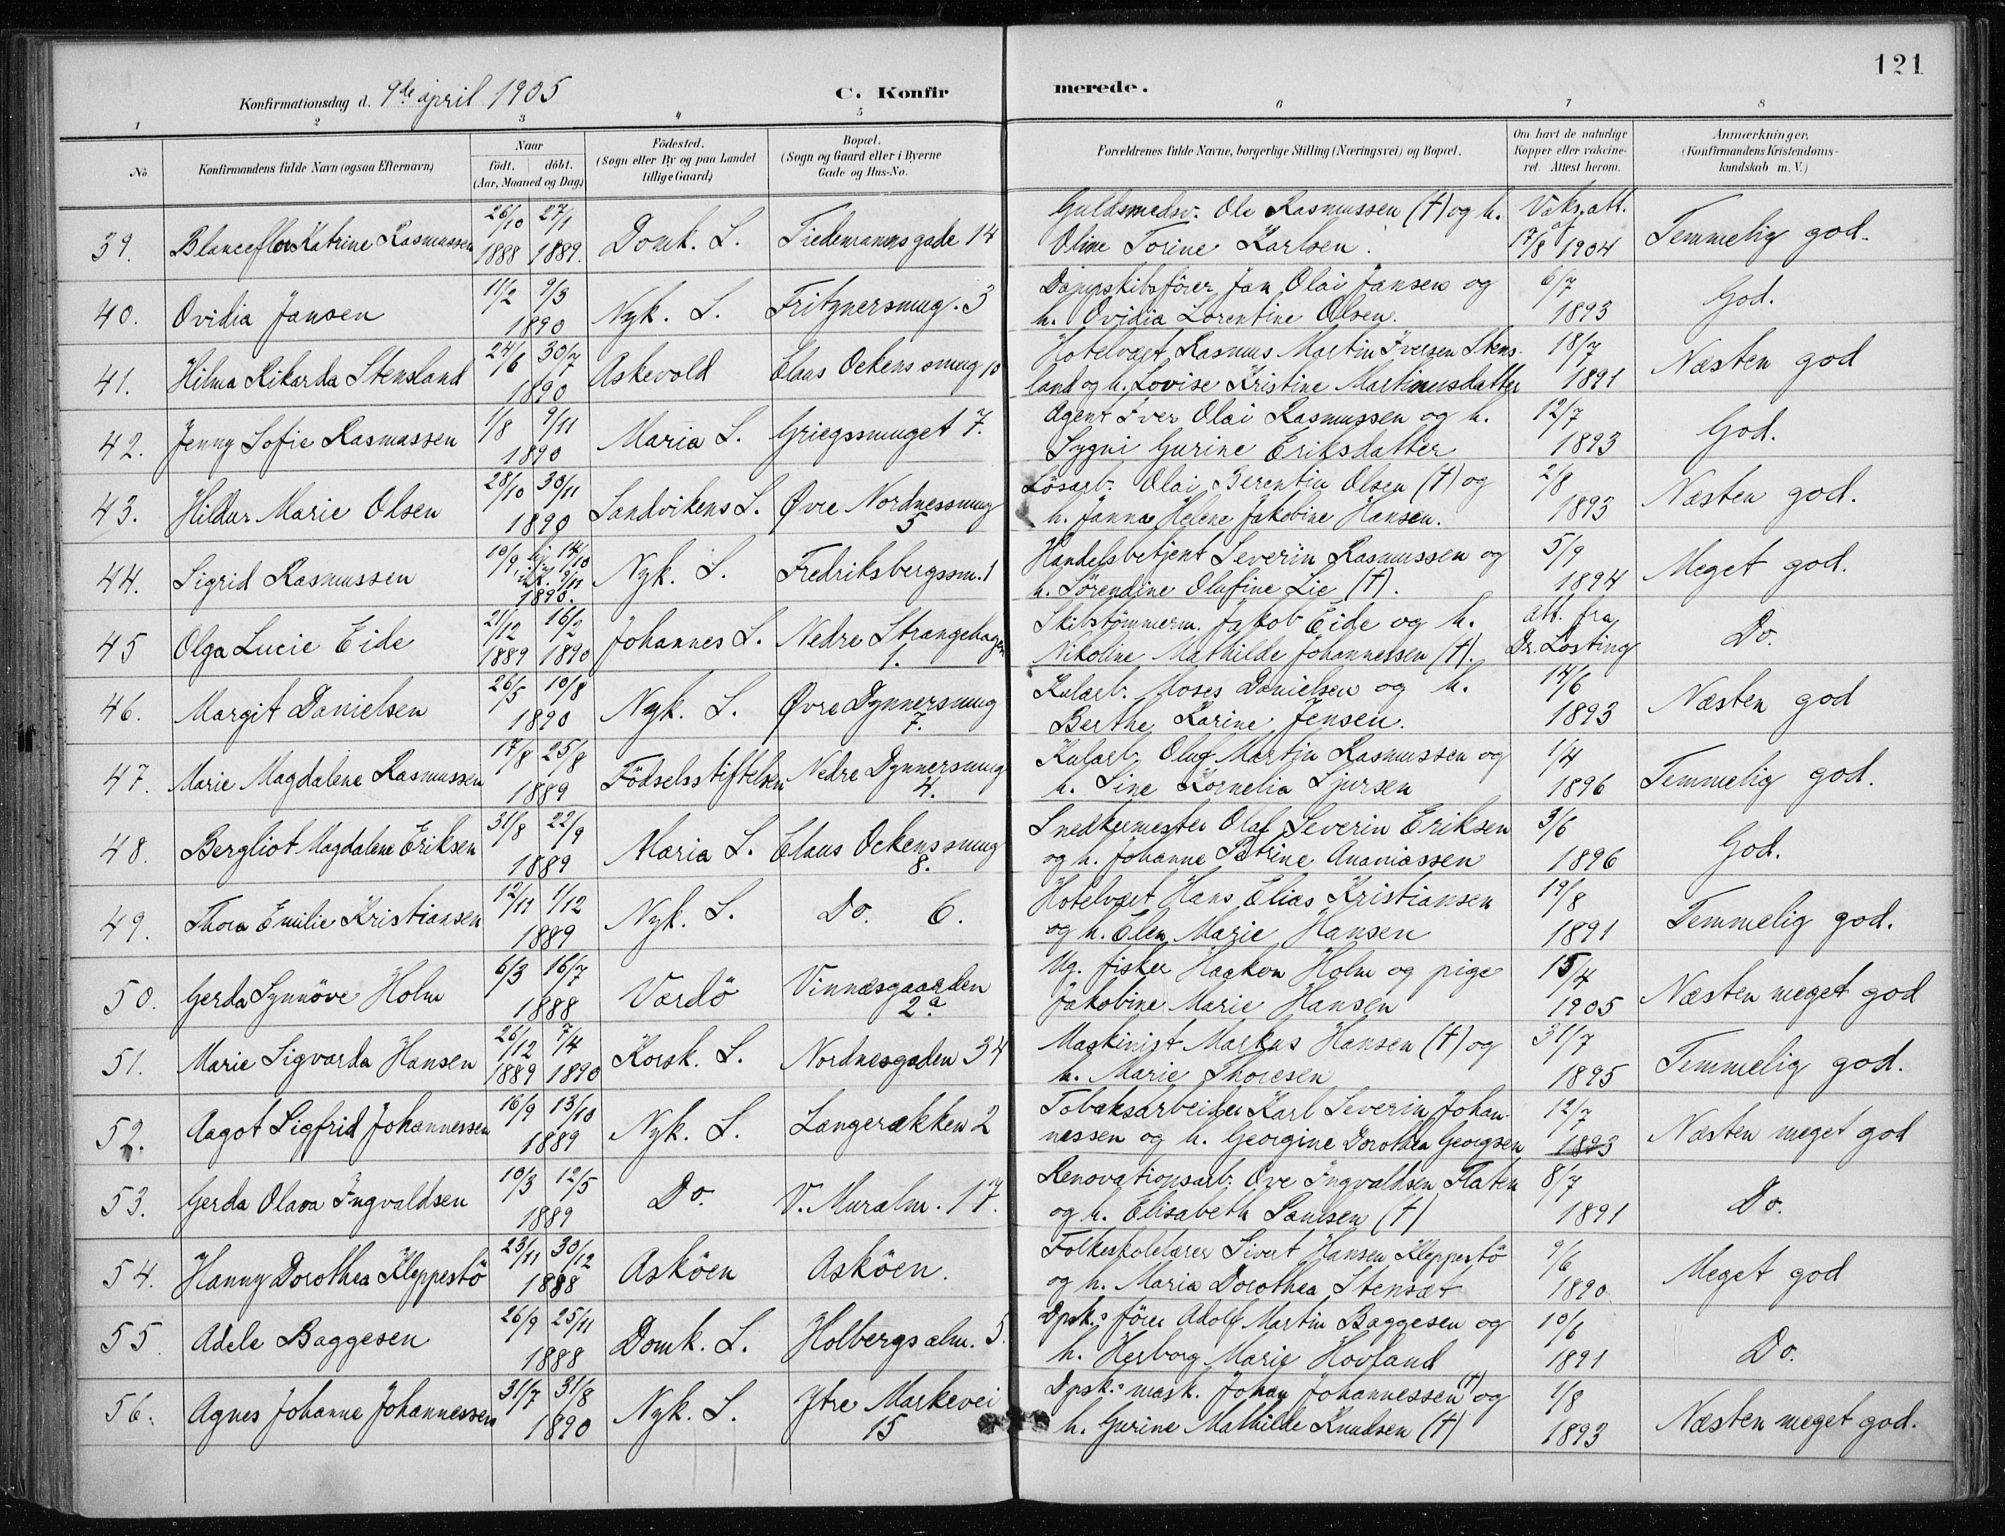 121
Konfirmationsdag d. 9de april 1905 C. Konfirmerede.
1 2 3 4 5 6 7 8
No Konfirmandens fulde Navn (ogsaa Efternavn) Naar født, døbt. (Aar, Maaned og Dag) Fødested. (Sogn eller By og paa Landet tillige Gaard) Bopæl. (Sogn og Gaard eller i Byerne Gade og Hus-No. Forældrenes fulde Navne, borgerlige Stilling (Næringsvei) og Bopæl. Om havt de naturlige Kopper eller vakcineret. Attest herom. Anmærkninger, (Konfirmandens Kristendomskundskab m. V.)
39. Blanceflor Katrine Rasmussen 26/10 1888 27/1 1889. Domk. S. Tiedemannsgade 14 Guldsmedsv. Ole Rasmussen (†) og h. Oline Torine Karlsen. Vaks.att. af 17/8 1904 Temmelig god.
40. Ovidia Jansen 11/2 9/3 1890 Nyk. S. Fritznersmug. 3 Dampskibsfører Jan Olai Jansen og h. Ovidia Lorentine Olsen. 6/7 1893 God.
41. Hilma Rikarda Stensland 24/6 30/7 1890 Askevold Claus Ockens smug 10 Hotelvært Rasmus Martin Iversen Stensland og h. Lovise Kristine Martinusdatter 18/7 1891 Næsten god
42. Jenny Sofie Rasmussen 1/8 9/11 1890 Maria S. Griegssmuget 7 Agent Iver Olai Rasmussen og h. Sygni Gurine Eriksdatter 12/7 1893 God.
43. Hildur Marie Olsen 28/10 30/11 1890 Sandvikens S. Øvre Nordnessmug 5 Løsarb. Olai Berentin Olsen (†) og h. Janna Helene Jakobine Hansen. 2/8 1893 Næsten god.
44. Sigrid Rasmussen 10/9, hj. 14/10 i k. 9/11 1890. Nyk. S. Fredriksbergssm. 1 Handelsbetjent Severin Rasmussen og h. Sørendine Olufine Lie (†). 5/9 1894 Meget god.
45 Olga Lucie Eide 21/12 1889 16/2 1890 Johannes S. Nedre Strangehagen 1. Skibstømmerm. Jakob Eide og h. Nikoline Mathilde Johannessen (†). att. fra Dr. Losting Do.
46. Margit Danielsen 26/5 10/8 1890 Nyk. S. Øvre Dynnersmug 7. Kularb. Moses Danielsen og h. Berthe Karine Jensen. 14/6 1893 Næsten god
47. Marie Magdalene Rasmussen 17/8 25/8 1889 Fødselsstiftelsen Nedre Dynnersmug 4. Kularb. Oluf Martin Rasmussen og h. Sine Kornelia Sjursen 1/4 1896 Temmelig god.
48. Bergliot Magdalene Eriksen 31/8 22/9 1889 Maria S. Claus Ockens smug 8. Snedkermester Olaf Severin Eriksen og h. Johanne Petrine Ananiassen 3/6 1896 God.
49. Thora Emilie Kristiansen 12/11 1/12 1889 Nyk. S. Do. 6. Hotelvært Hans Elias Kristiansen og h. Elen Marie Hansen 19/8 1891 Temmelig god.
50. Gerda Synnøve Holm 6/3 16/7 1888 Vardö Vinnæsgaarden 2a Ug. fisker Haakon Holm og pige Jakobine Marie Hansen 15/4 1905 Næsten meget god
51. Marie Sigvarda Hansen 26/12 1889 7/4 1890 Korsk. S. Nordnesgaden 34 Maskinist Markus Hansen (†) og h. Marie Thoresen 31/7 1895 Temmelig god.
52. Aagot Sigfrid Johannessen 16/9 13/10 1889 Nyk. S. Langerækken 2 Tobaksarbeider Karl Severin Johannessen og h. Georgine Dorothea Georgsen 12/7 1893 Næsten meget god
53. Gerda Olava Ingvaldsen 10/3 12/5 1889 Do. V. Muralm. 17. Renovationsarb. Ove Ingvaldsen Flaten og h. Elisabeth Paulsen (†) 8/7 1891 Do.
54. Hanny Dorothea Kleppestö 23/11 30/12 1888 Asköen Asköen. Folkeskolelærer Sivert Hansen Kleppestö og h. Maria Dorothea Stensæt 9/6 1890 Meget god
55. Adele Baggesen 26/9 25/11 1888 Domk. S. Holbergsalm. 5. Dpsk.s fører Adolf Martin Baggesen og h. Herborg Marie Hovland 10/6 1891 Do.
56. Agnes Johanne Johannessen 31/7 31/8 1890 Nyk. S. Ytre Markevei 15 Dpsk.s mask. Johan Johannessen (†) og h. Gurine Mathilde Knudsen (†) 1/8 1893 Næsten meget god.